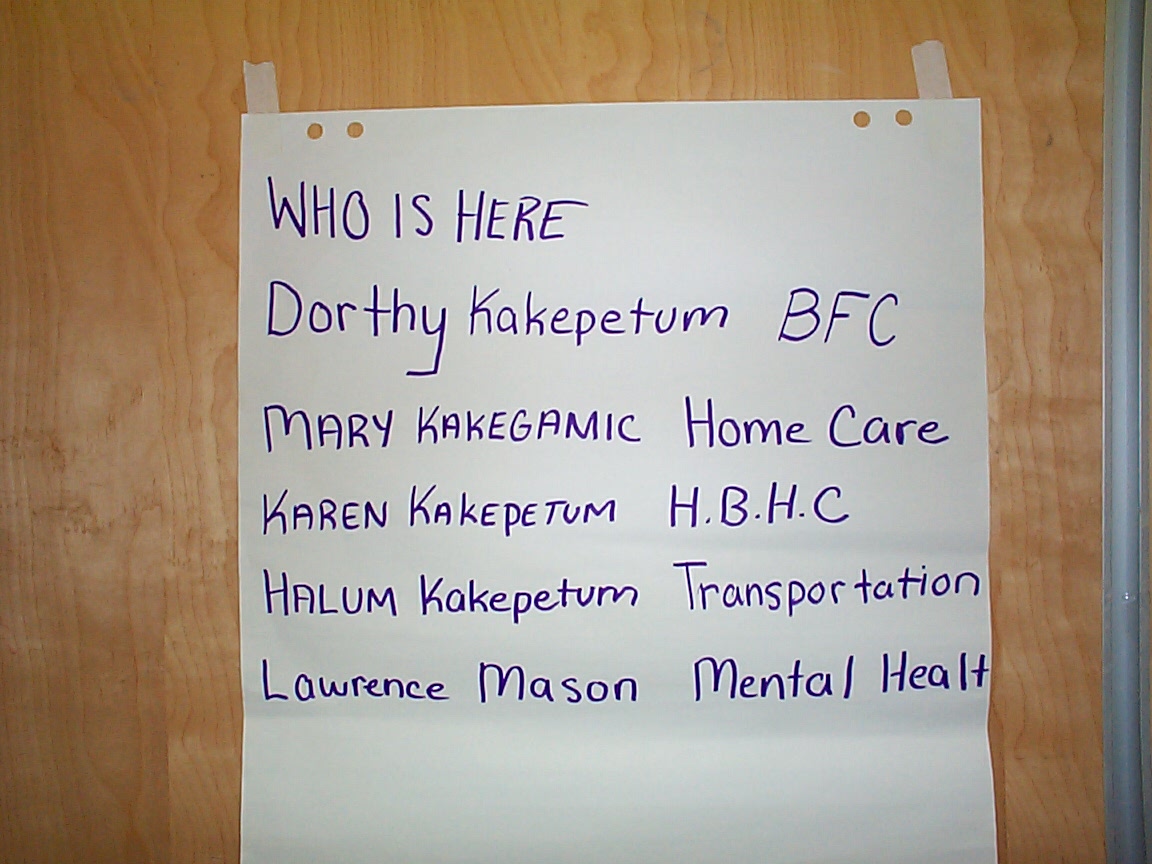 WHO IS HERE
Dorthy Kakepetum BFC
MARY KAKEGAMIC Home Care
KAREN KAKEPETUM H.B.H.C
HALUM Kakepetum Transportation
Lawrence Mason Mental Healt